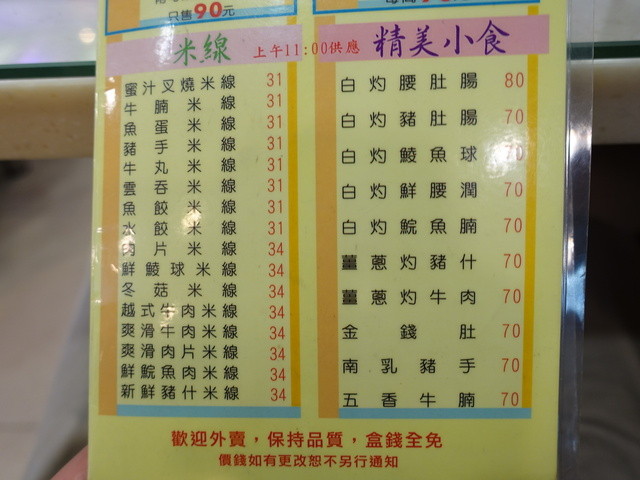 只售90元
米線 上午11:00供應 精美小食
蜜汁叉燒米線 31
牛腩米線 31
魚蛋米線 31
豬手米線 31
牛丸米線 31
雲吞米線 31
魚餃米線 31
水餃米線 31
肉片米線 34
鮮鯪球米線 34
冬菇米線 34
越式牛肉米線 34
爽滑牛肉米線 34
爽滑肉片米線 34
鮮鯇魚肉米線 34
新鮮豬什米線 34
白灼腰肚腸 80
白灼豬肚腸 70
白灼鯪魚球 70
白灼鮮腰潤 70
白灼鯇魚腩 70
薑蔥灼豬什 70
薑蔥灼牛肉 70
金錢肚 70
南乳豬手 70
五香牛腩 70
歡迎外賣，保持品質，盒錢全免
價錢如有更改恕不另行通知